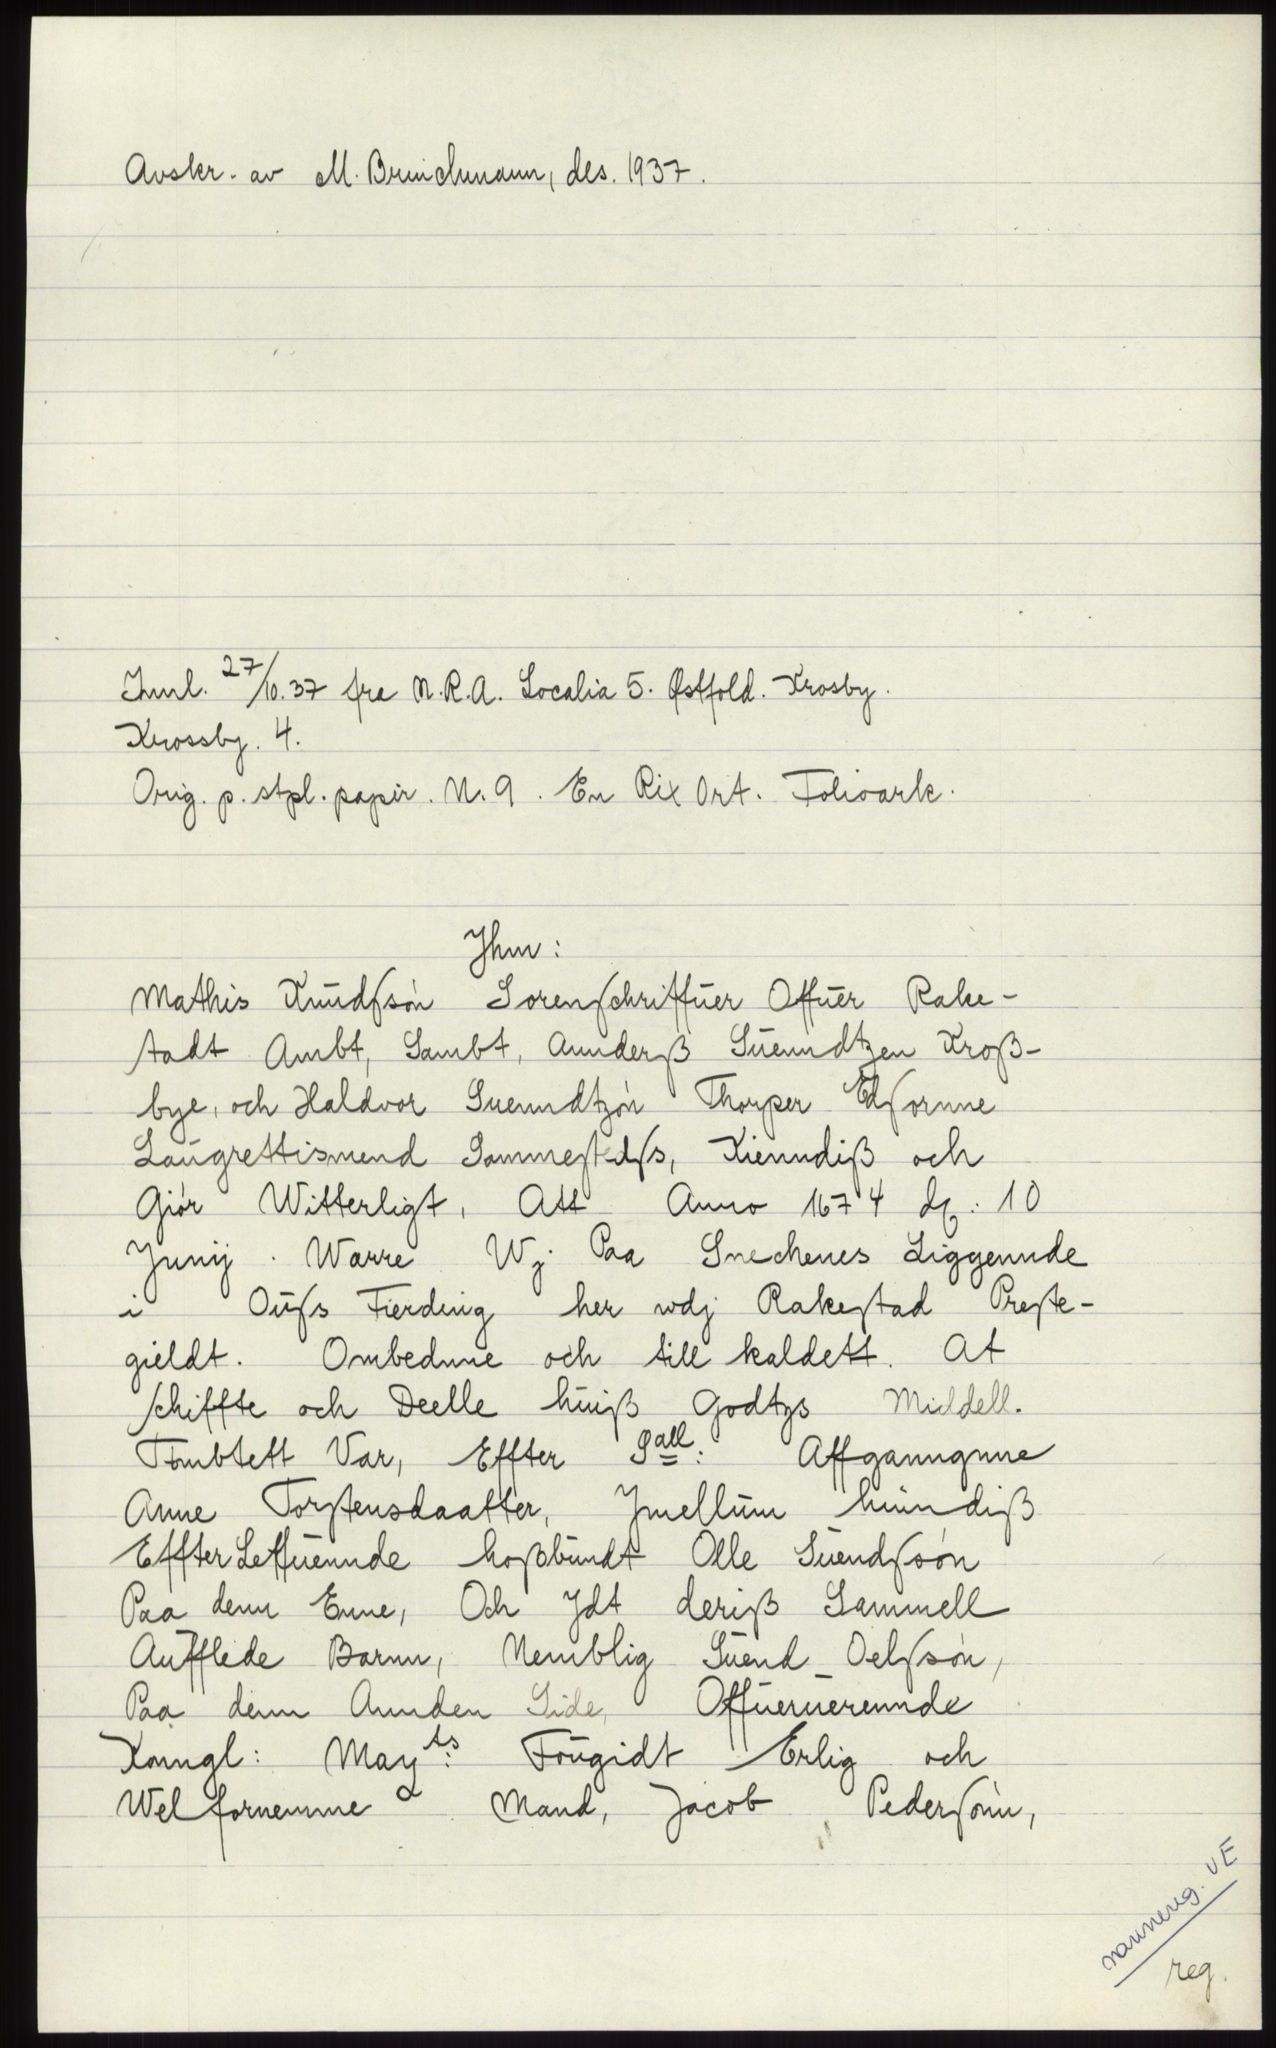 Avskr. av M. Brinchmann, des. 1937.
Innl. 27/10.37 fra N.R.A. Localia 5. Østfold. Krosby.
Krossby. 4.
Orig. p. stpl. papir. N. 9. En Rix Ort. Folioark.
Jhm:
Mathis Knudſsøn Sorenſchriffuer Offuer Rake-
stadt Ambt, Sambt, Annderß Suenndtzen Kroß-
bye, och Haldvor Suenndtzøn Thorper Edſornne
Laugrettismend Sammeſtedſs, Kienndiß och
Giør Witterligt, Att Anno 1674 dȩ: 10
Junij. Warre Wj Paa Snechenes Liggennde
i Ouſs Fierding her wdj Rakeſtad Preſte-
gieldt. Ombednne och till kaldett. At
schiffte och Deelle huiß Godtzs Middell.
Fombtett Var, Effter Sall: Affganngnne
Anne Torſtensdaatter, Jmellum hinndiß
Effter Leffuennde hoßbundt Olle Suendſsøn
Paa denn Enne, Och Jdt deriß Sammell
Aufflede Barnn, Nemblig Suend Oelſsøn,
Paa denn Annden Side, Offueruerennde
Konngl: Mayts: Fougidt Erlig och
Welfornemme Mand, Jacob Pederſønn,
navnereg. VE
reg.